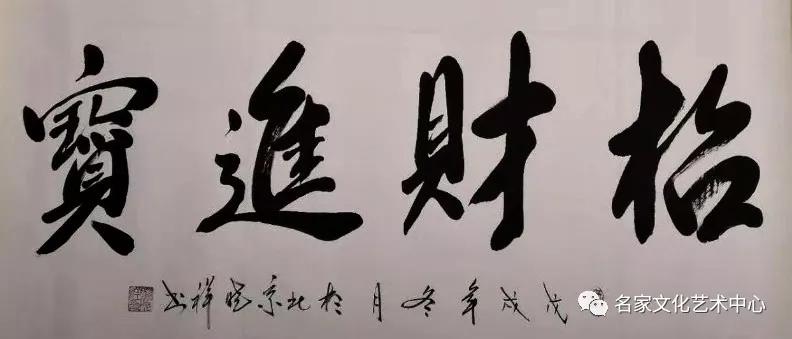 招財進寶
戊戌年冬月於北京晓祥书
名家文化艺术中心